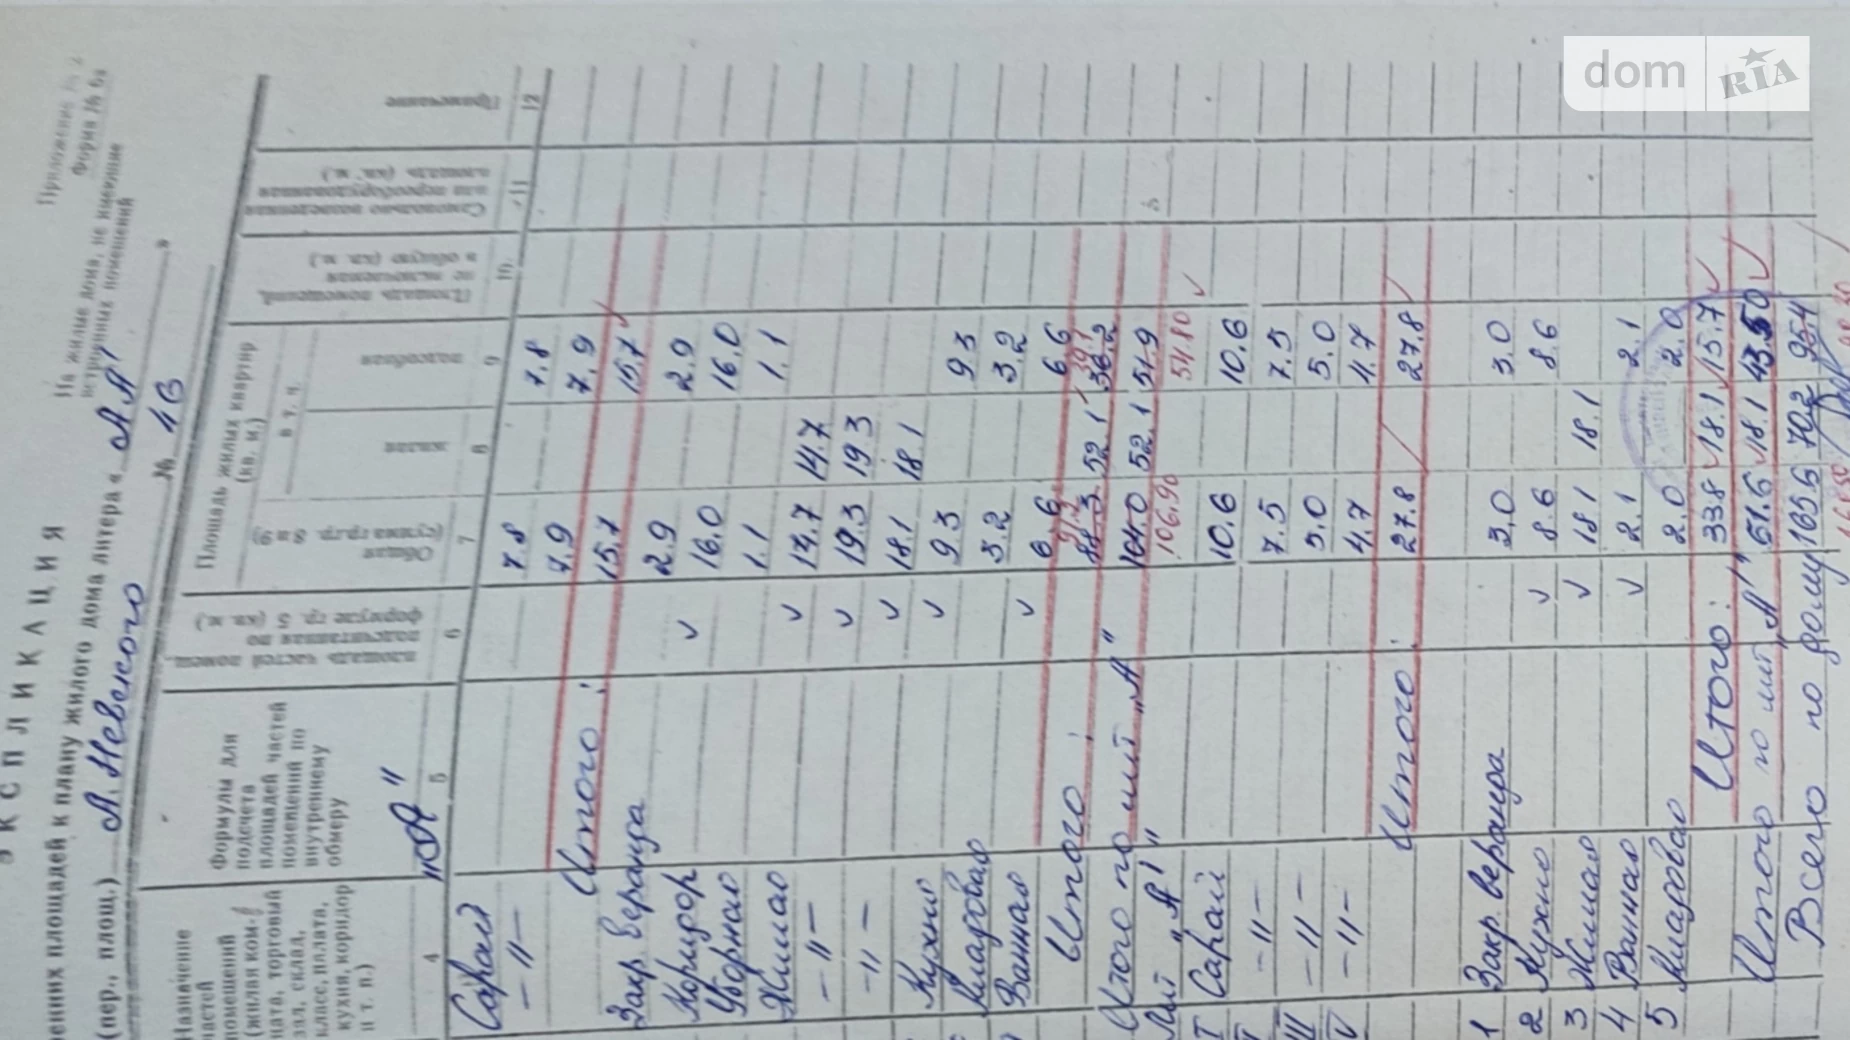 dom RIA
Приложение № 2
Форма № 6а
На жилые дома, не имеющие
встроенных помещений
ЭКСПЛИКАЦИЯ
площадей к плану жилого дома литера „А А'"
(пер., площ.) А. Невского № 4б
Назначение частей помещений (жилая ком-та, торговый зал, склад, класс, палата, кухня, коридор и т. п.)
Формулы для подсчета площадей частей помещений по внутреннему обмеру
площадь частей помещ., подсчитанная по формуле гр. 5 (кв. м.)
Площадь жилых квартир (кв. м.)
Общая (сумма гр.гр. 8 и 9)
в т. ч.
жилая
подсобная
Площадь помещений, не включенная в общую (кв. м.)
Самовольно возведенная или переоборудованная площадь (кв. м.)
Примечание
4 5 6 7 8 9 10 11 12
„А"
Сарай 7.8 7.8
-"- 7.9 7.9
Итого: 15.7 15.7
Закр. веранда 2.9 2.9
Коридор 16.0 16.0
Уборная 1.1 1.1
Жилая 14.7 14.7
-"- 19.3 19.3
-"- 18.1 18.1
Кухня 9.3 9.3
Кладовая 3.2 3.2
Ванная 6.6 6.6
Итого: 88.3 52.1 36.2
Итого по лит „А" 104.0 52.1 51.9
Лит „А'" 106.90 54.80
I Сарай 10.6 10.6
-"- 7.5 7.5
III -"- 5.0 5.0
-"- 4.7 4.7
Итого: 27.8 27.8
1 Закр. веранда 3.0 3.0
2 Кухня 8.6 8.6
3 Жилая 18.1 18.1
4 Ванная 2.1 2.1
5 Кладовая 2.0 2.0
Итого: 33.8 18.1 15.7
Итого по лит „А'" 61.6 18.1 43.50
Всего по дому 165.6 70.2 95.4